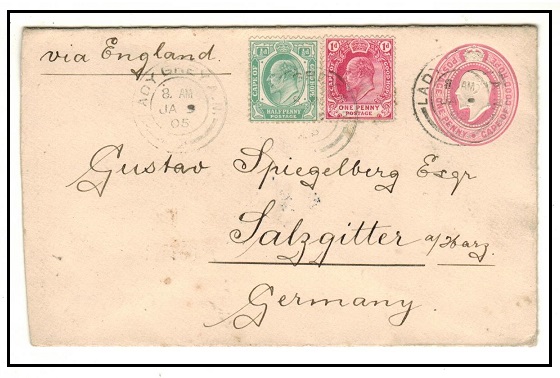 via England.
LADY GREY
8. AM
JA 9
05
CAPE OF GOOD HOPE
HALF PENNY
POSTAGE
CAPE OF GOOD HOPE
ONE PENNY
POSTAGE
LADY
AM
ONE PENNY CAPE OF GOOD HOPE
Gustav Spiegelberg Esqr
Salzgitter a/Harz.
Germany.